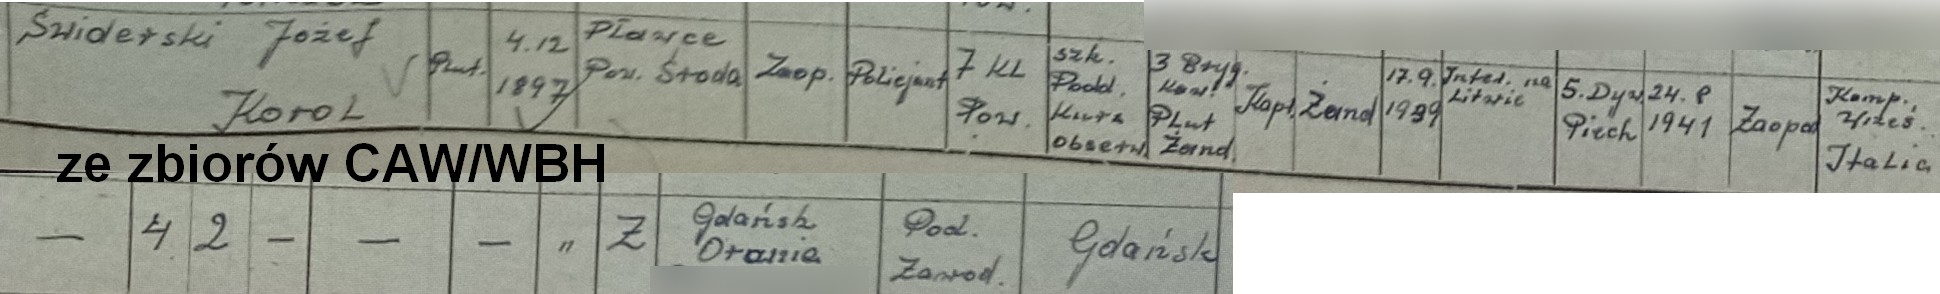 Świderski Józef
Karol
Plut.
4.12
1897
Pławce
Pow. Środa
Zaop.
Policjant
7 KL
Pow.
szk.
Podd.
Kurs
obserw
3 Bryg.
Kaw.
Plut
Żand.
Kapr.
Żand
17.9.
1939
Inter. na
Litwie
5. Dyw.
Piech
24. 8
1941
Zaopa
Kamp.
Wrześ.
Italia
ze zbiorów CAW/WBH
— 4 2 — — — „ Z
Gdańsk
Orania
Pod.
Zawod.
Gdańsk